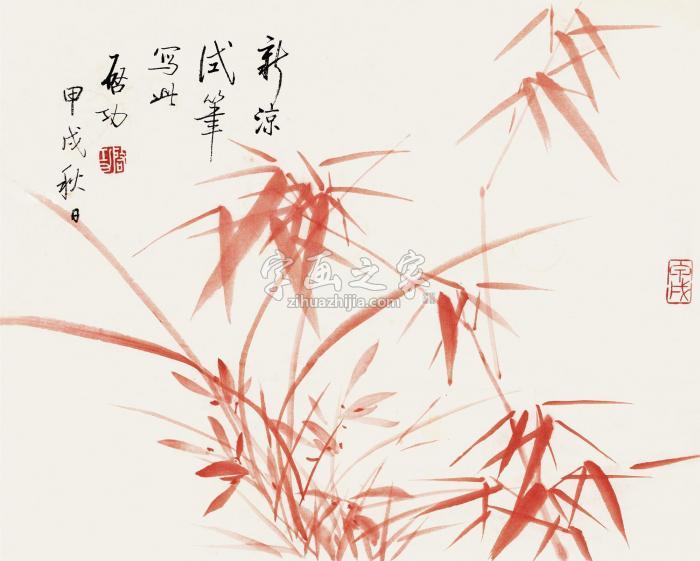 新涼
试筆
写此
啓功
甲戌秋日
字画之家
zihuazhijia.com